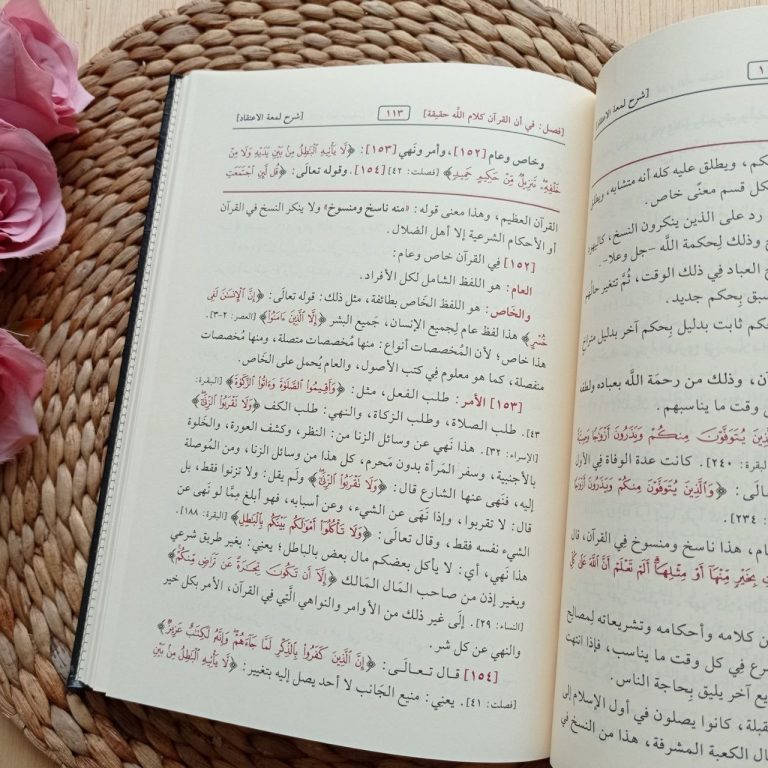 [فصل: في أن القرآن كلام اللَّه حقيقة] ١١٣ [شرح لمعة الاعتقاد]
وخاص وعام [١٥٢]، وأمر ونَهي [١٥٣]: ﴿لَّا يَأْتِيهِ الْبَاطِلُ مِن بَيْنِ يَدَيْهِ وَلَا مِنْ
خَلْفِهِ تَنزِيلٌ مِّنْ حَكِيمٍ حَمِيدٍ﴾ [فصلت: ٤٢] [١٥٤]. وقوله تعالَى: ﴿قُل لَّئِنِ اجْتَمَعَتِ
القرآن العظيم، وهذا معنى قوله: «منه ناسخ ومنسوخ» ولا ينكر النسخ في القرآن
أو الأحكام الشرعية إلا أهل الضلال.
[١٥٢] فِي القرآن خاص وعام:
العام: هو اللفظ الشامل لكل الأفراد.
والخَاص: هو اللفظ الخَاص بطائفة، مثل ذلك: قوله تعالَى: ﴿إِنَّ الْإِنسَانَ لَفِي
خُسْرٍ﴾ هذا لفظ عام لِجميع الإنسان، جَميع البشر ﴿إِلَّا الَّذِينَ آمَنُوا﴾ [العصر: ٢-٣].
هذا خاص؛ لأن المُخصصات أنواع: منها مُخصصات متصلة، ومنها مُخصصات
منفصلة، كما هو معلوم فِي كتب الأصول، والعام يُحمل على الخَاص.
[١٥٣] الأمر: طلب الفعل، مثل: ﴿وَأَقِيمُوا الصَّلَاةَ وَآتُوا الزَّكَاةَ﴾ [البقرة:
٤٣]. طلب الصلاة، وطلب الزكاة، والنهي: طلب الكف ﴿وَلَا تَقْرَبُوا الزِّنَى﴾
[الإسراء: ٣٢]. هذا نَهي عن وسائل الزنا من: النظر، وكشف العورة، والخَلوة
بالأجنبية، وسفر المَرأة بدون مَحرم، كل هذا من وسائل الزنا، ومن المُوصلة
إليه، فنَهى عنها الشارع قال: ﴿وَلَا تَقْرَبُوا الزِّنَى﴾ ولَم يقل: ولا تزنوا فقط، بل
قال: لا تقربوا، وإذا نَهَى عن الشيء، وعن أسبابه، فهو أبلغ مِمَّا لو نَهَى عن
الشيء نفسه فقط، وقال تعالَى: ﴿وَلَا تَأْكُلُوا أَمْوَالَكُم بَيْنَكُم بِالْبَاطِلِ﴾ [البقرة: ١٨٨].
هذا نهي، أي: لا يأكل بعضكم مال بعض بالباطل؛ يعني: بغير طريق شرعي
وبغير إذن من صاحب المَال المَالك ﴿إِلَّا أَن تَكُونَ تِجَارَةً عَن تَرَاضٍ مِّنكُمْ﴾
[النساء: ٢٩]. إلَى غير ذلك من الأوامر والنواهي الَّتِي فِي القرآن، الأمر بكل خير
والنهي عن كل شر.
[١٥٤] قال تعالَى: ﴿إِنَّ الَّذِينَ كَفَرُوا بِالذِّكْرِ لَمَّا جَاءَهُمْ وَإِنَّهُ لَكِتَابٌ عَزِيزٌ﴾
[فصلت: ٤١]. يعني: منيع الجَانب لا أحد يصل إليه بتغيير: ﴿لَّا يَأْتِيهِ الْبَاطِلُ مِن بَيْنِ
[شرح لمعة الاعتقاد]
ويطلق عليه كله أنه متشابه،
كل قسم معنًى خاص.
رد على الذين ينكرون النسخ،
وذلك لِحكمة اللَّه -جل وعلا-
العباد في ذلك الوقت، ثُمَّ تتغير
بِحكم جديد.
ثابت بدليل بِحكم آخر بدليل
وذلك من رحمَة اللَّه بعباده ولطفه
وقت ما يناسبهم.
يُتَوَفَّوْنَ مِنكُمْ وَيَذَرُونَ أَزْوَاجًا
البقرة: ٢٤٠]. كانت عدة الوفاة في
﴿وَالَّذِينَ يُتَوَفَّوْنَ مِنكُمْ وَيَذَرُونَ
٢٣٤].
هذا ناسخ ومنسوخ فِي القرآن، قال
بِخَيْرٍ مِّنْهَا أَوْ مِثْلِهَا أَلَمْ تَعْلَمْ أَنَّ اللَّهَ عَلَى
كلامه وأحكامه وتشريعاته لِمصالح
فِي كل وقت ما يناسب، فإذا انتهت
آخر يليق بِحاجة الناس.
كانوا يصلون فِي أول الإسلام إلَى
الكعبة المشرفة، هذا من النسخ فِي